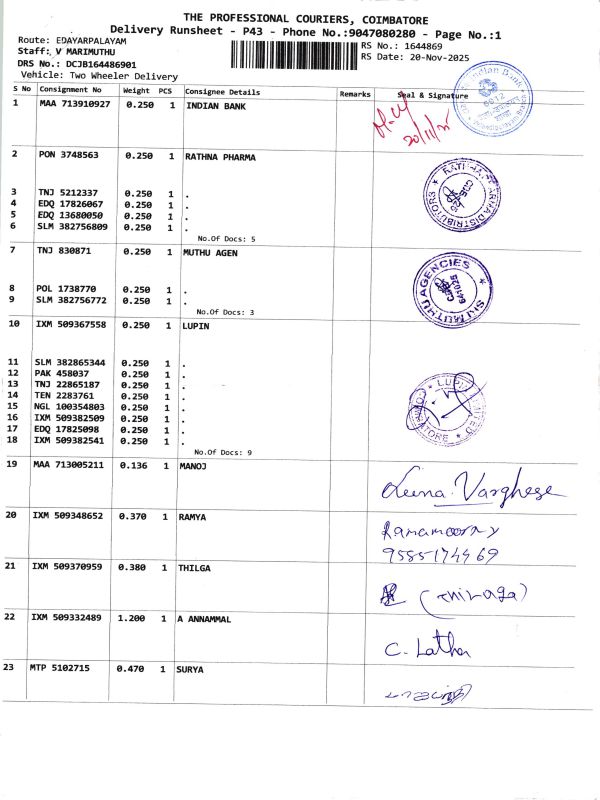 THE PROFESSIONAL COURIERS, COIMBATORE
Delivery Runsheet - P43 - Phone No.:9047080280 - Page No.:1
Route: EDAYARPALAYAM
Staff: V MARIMUTHU
DRS No.: DCJB164486901
Vehicle: Two Wheeler Delivery
RS No.: 1644869
RS Date: 20-Nov-2025
S No Consignment No Weight PCS Consignee Details Remarks Seal & Signature
1 MAA 713910927 0.250 1 INDIAN BANK
Indian Bank
20/11/25
2 PON 3748563 0.250 1 RATHNA PHARMA
RATHNA PHARMA DISTRIBUTORS
3 TNJ 5212337 0.250 1 .
4 EDQ 17826067 0.250 1 .
5 EDQ 13680050 0.250 1 .
6 SLM 382756809 0.250 1 .
No.Of Docs: 5
7 TNJ 830871 0.250 1 MUTHU AGEN
SRI MUTHU AGENCIES
641025
8 POL 1738770 0.250 1 .
9 SLM 382756772 0.250 1 .
No.Of Docs: 3
10 IXM 509367558 0.250 1 LUPIN
11 SLM 382865344 0.250 1 .
12 PAK 458037 0.250 1 .
13 TNJ 22865187 0.250 1 .
14 TEN 2283761 0.250 1 .
15 NGL 100354803 0.250 1 .
16 IXM 509382509 0.250 1 .
17 EDQ 17825098 0.250 1 .
18 IXM 509382541 0.250 1 .
LUPIN LIMITED
No.Of Docs: 9
19 MAA 713005211 0.136 1 MANOJ
Leena Varghese
20 IXM 509348652 0.370 1 RAMYA
Ramamoorthy
9585174469
21 IXM 509370959 0.380 1 THILGA
(Thilaga)
22 IXM 509332489 1.200 1 A ANNAMMAL
C. Latha
23 MTP 5102715 0.470 1 SURYA